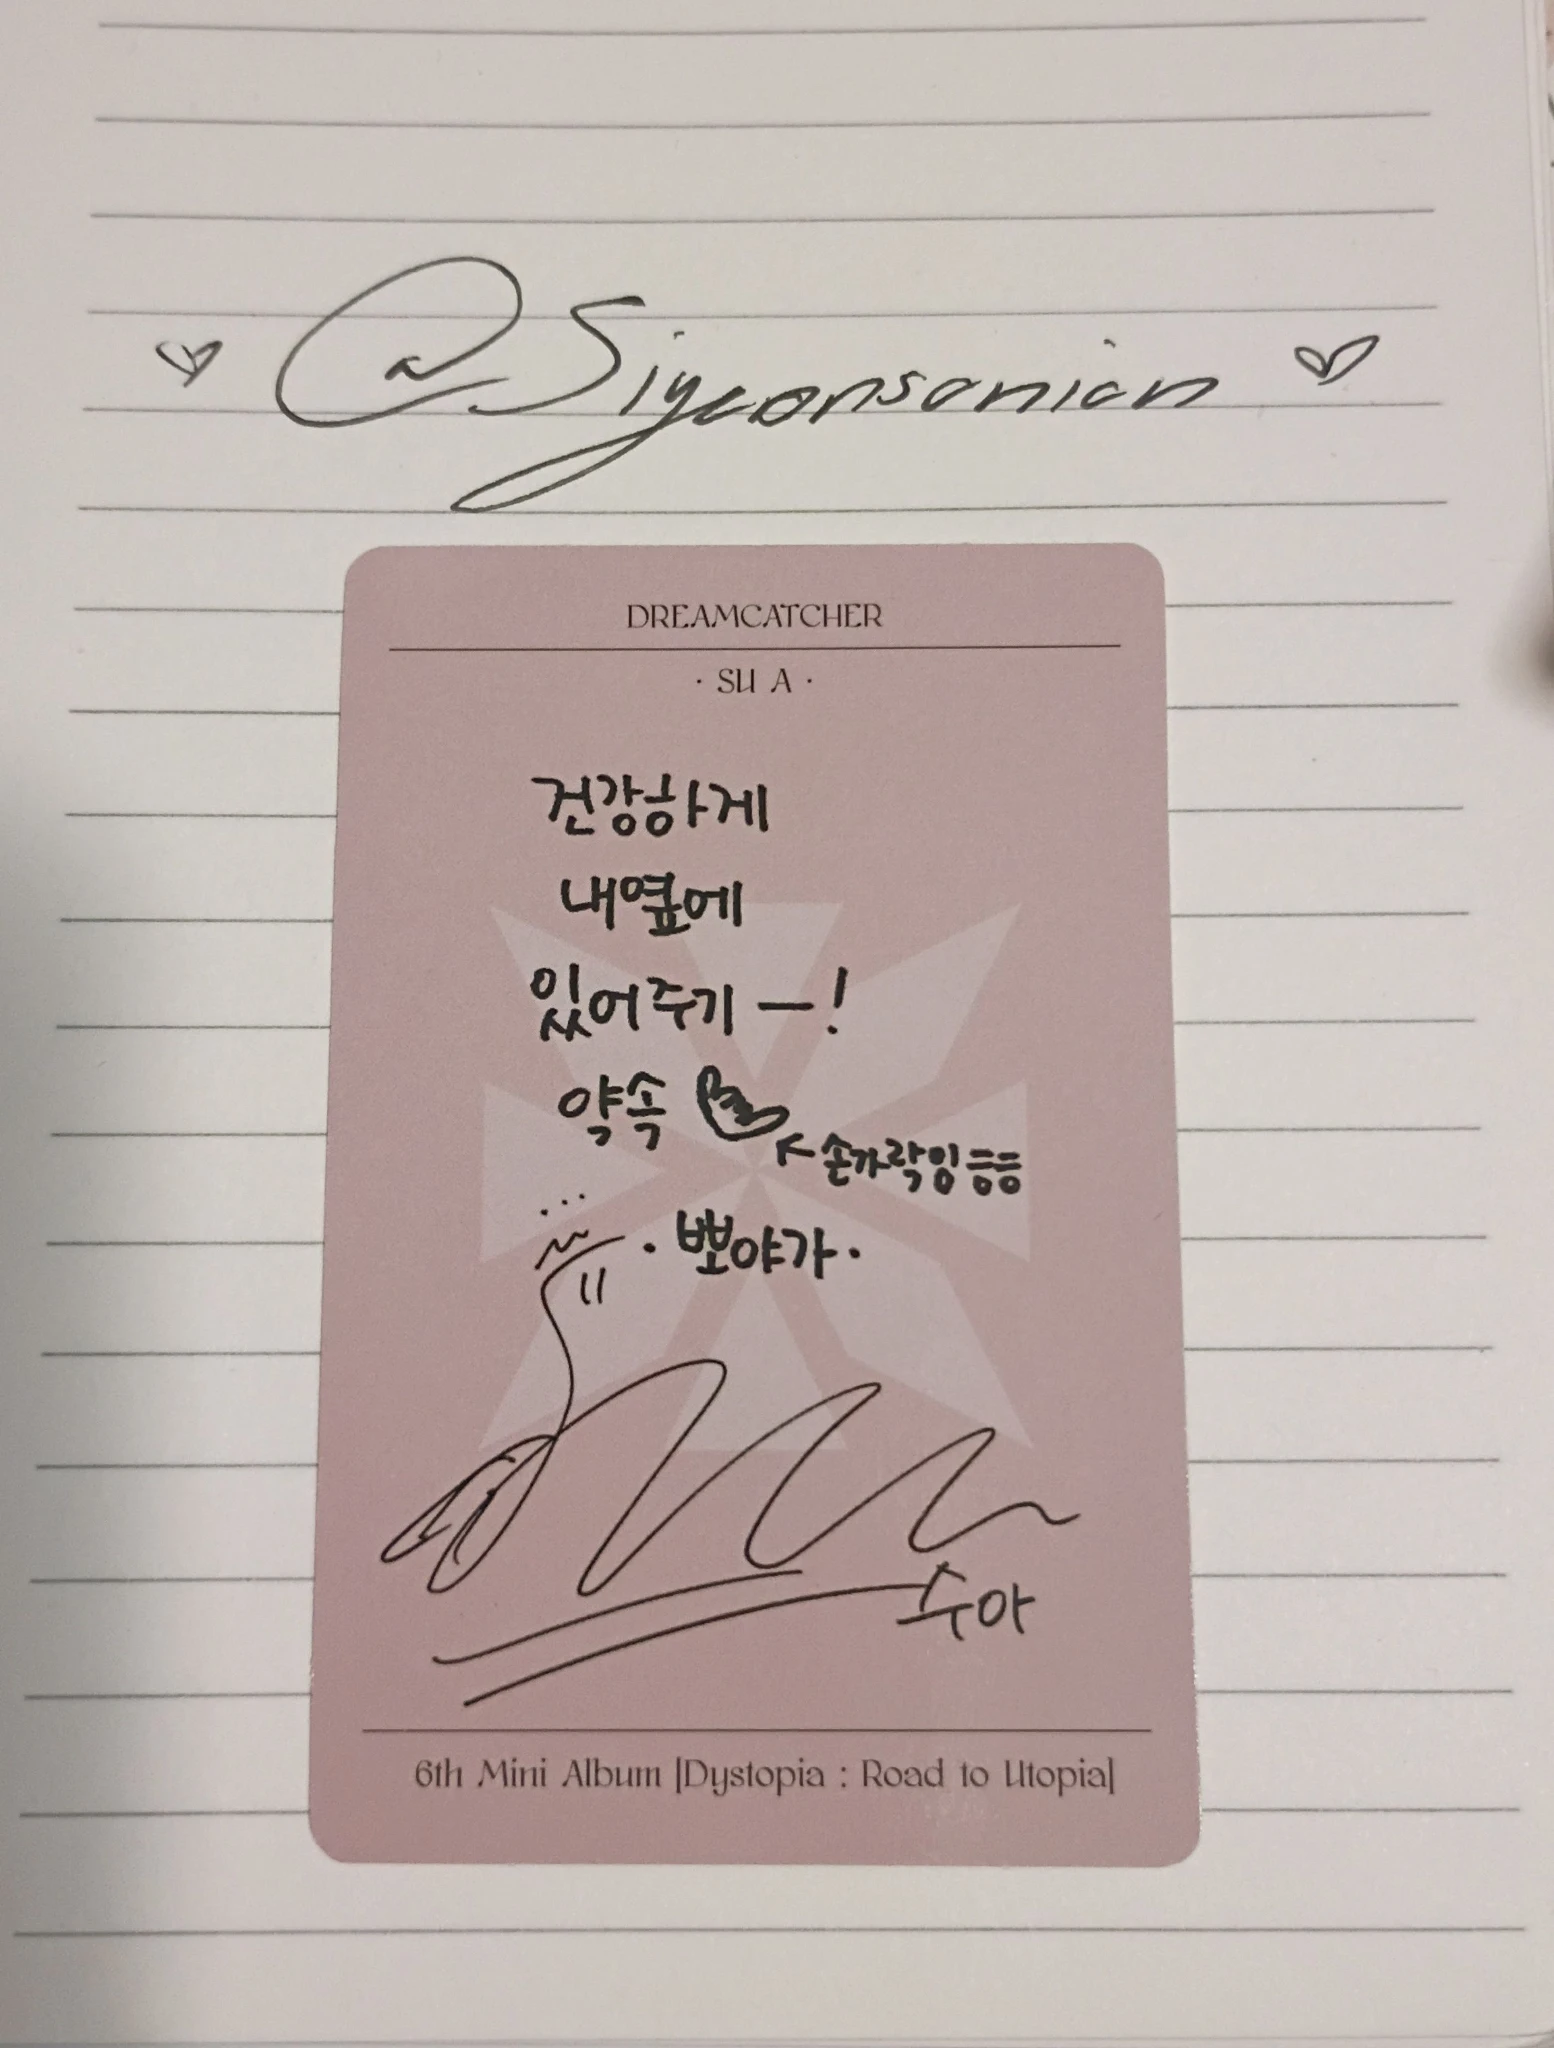 @Siyeonsanian
DREAMCATCHER
· SU A ·
건강하게
내옆에
있어주기 ㅡ!
약속
손가락임 ㅎㅎ
· 뽀야가 ·
수아
6th Mini Album [Dystopia : Road to Utopia]